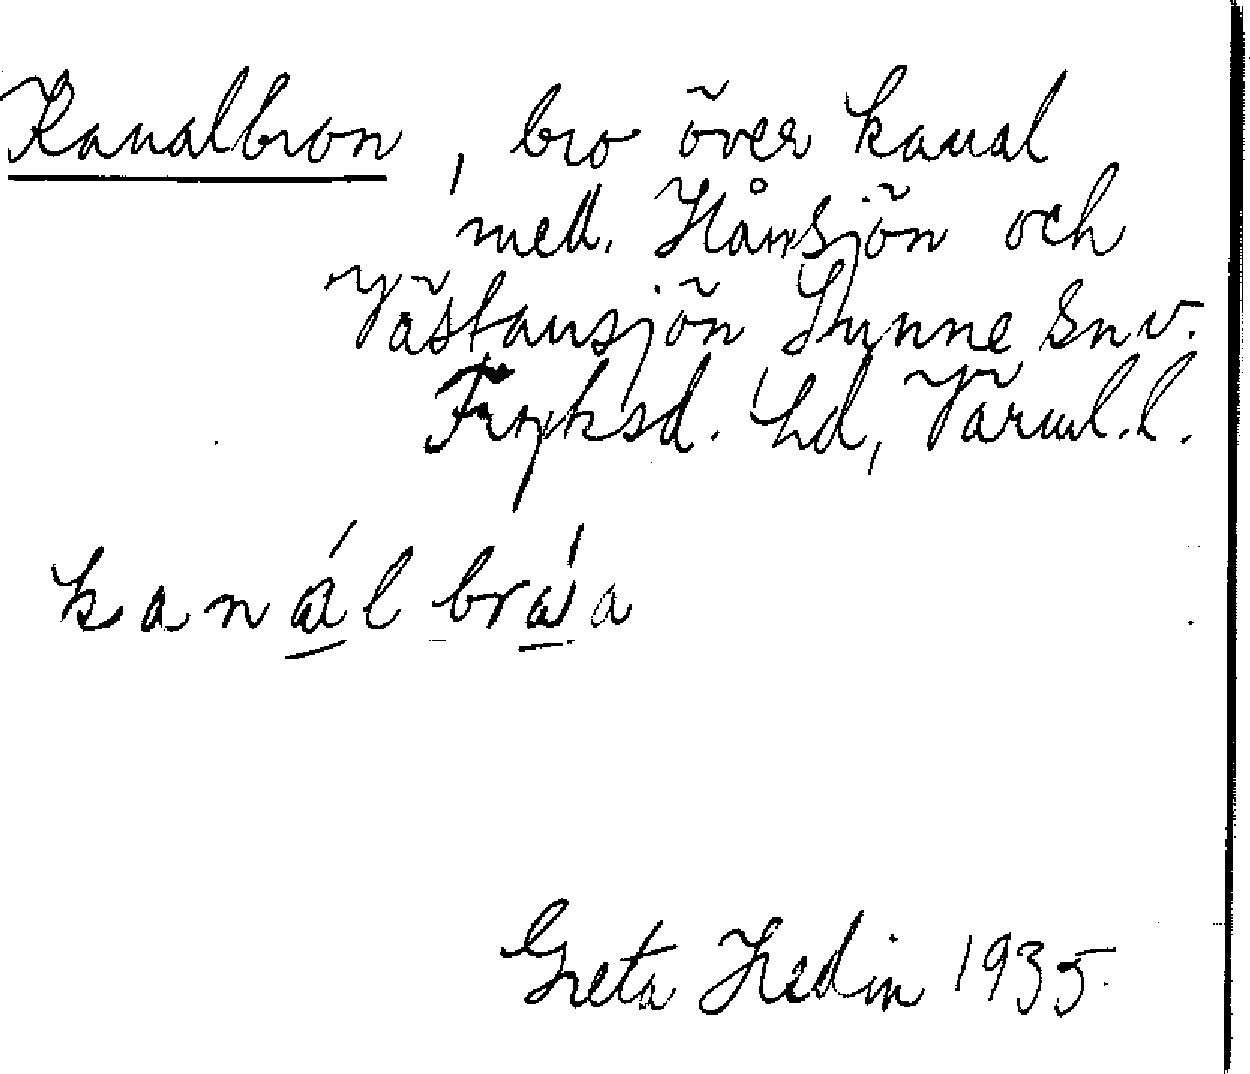 Kanalbron, bro över kanal
med. Hånsjön och
Västansjön Sunne snv.
Fryksd. hd, Värml.l.
kanál bráa
Greta Hedin 1935.